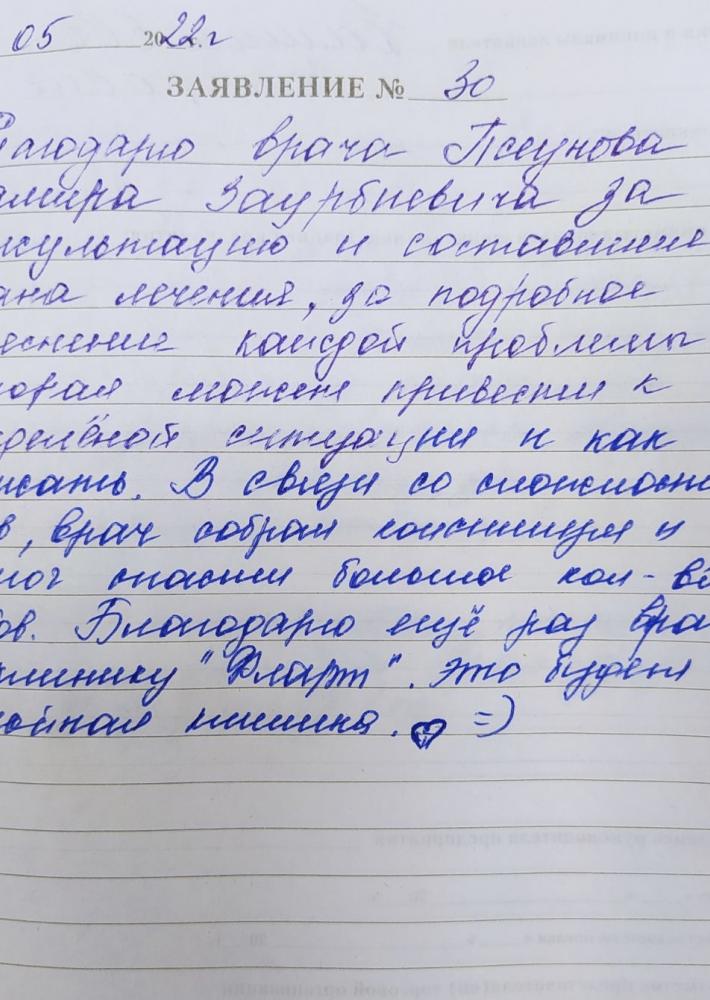 05 2022 г.
ЗАЯВЛЕНИЕ № 30
лагодарю врача Псеунова
амира Заурбиевича за
нсультацию и составление
ана лечения, за подробное
яснение каждой проблемы
торая может привести к
делённой ситуации и как
жать. В связи со сложность
в, врач собрал консилиум и
мог спасти большое кол-во
ов. Благодарю ещё раз врач
клинику "Фларт". Это будет
ойная улыбка. =)